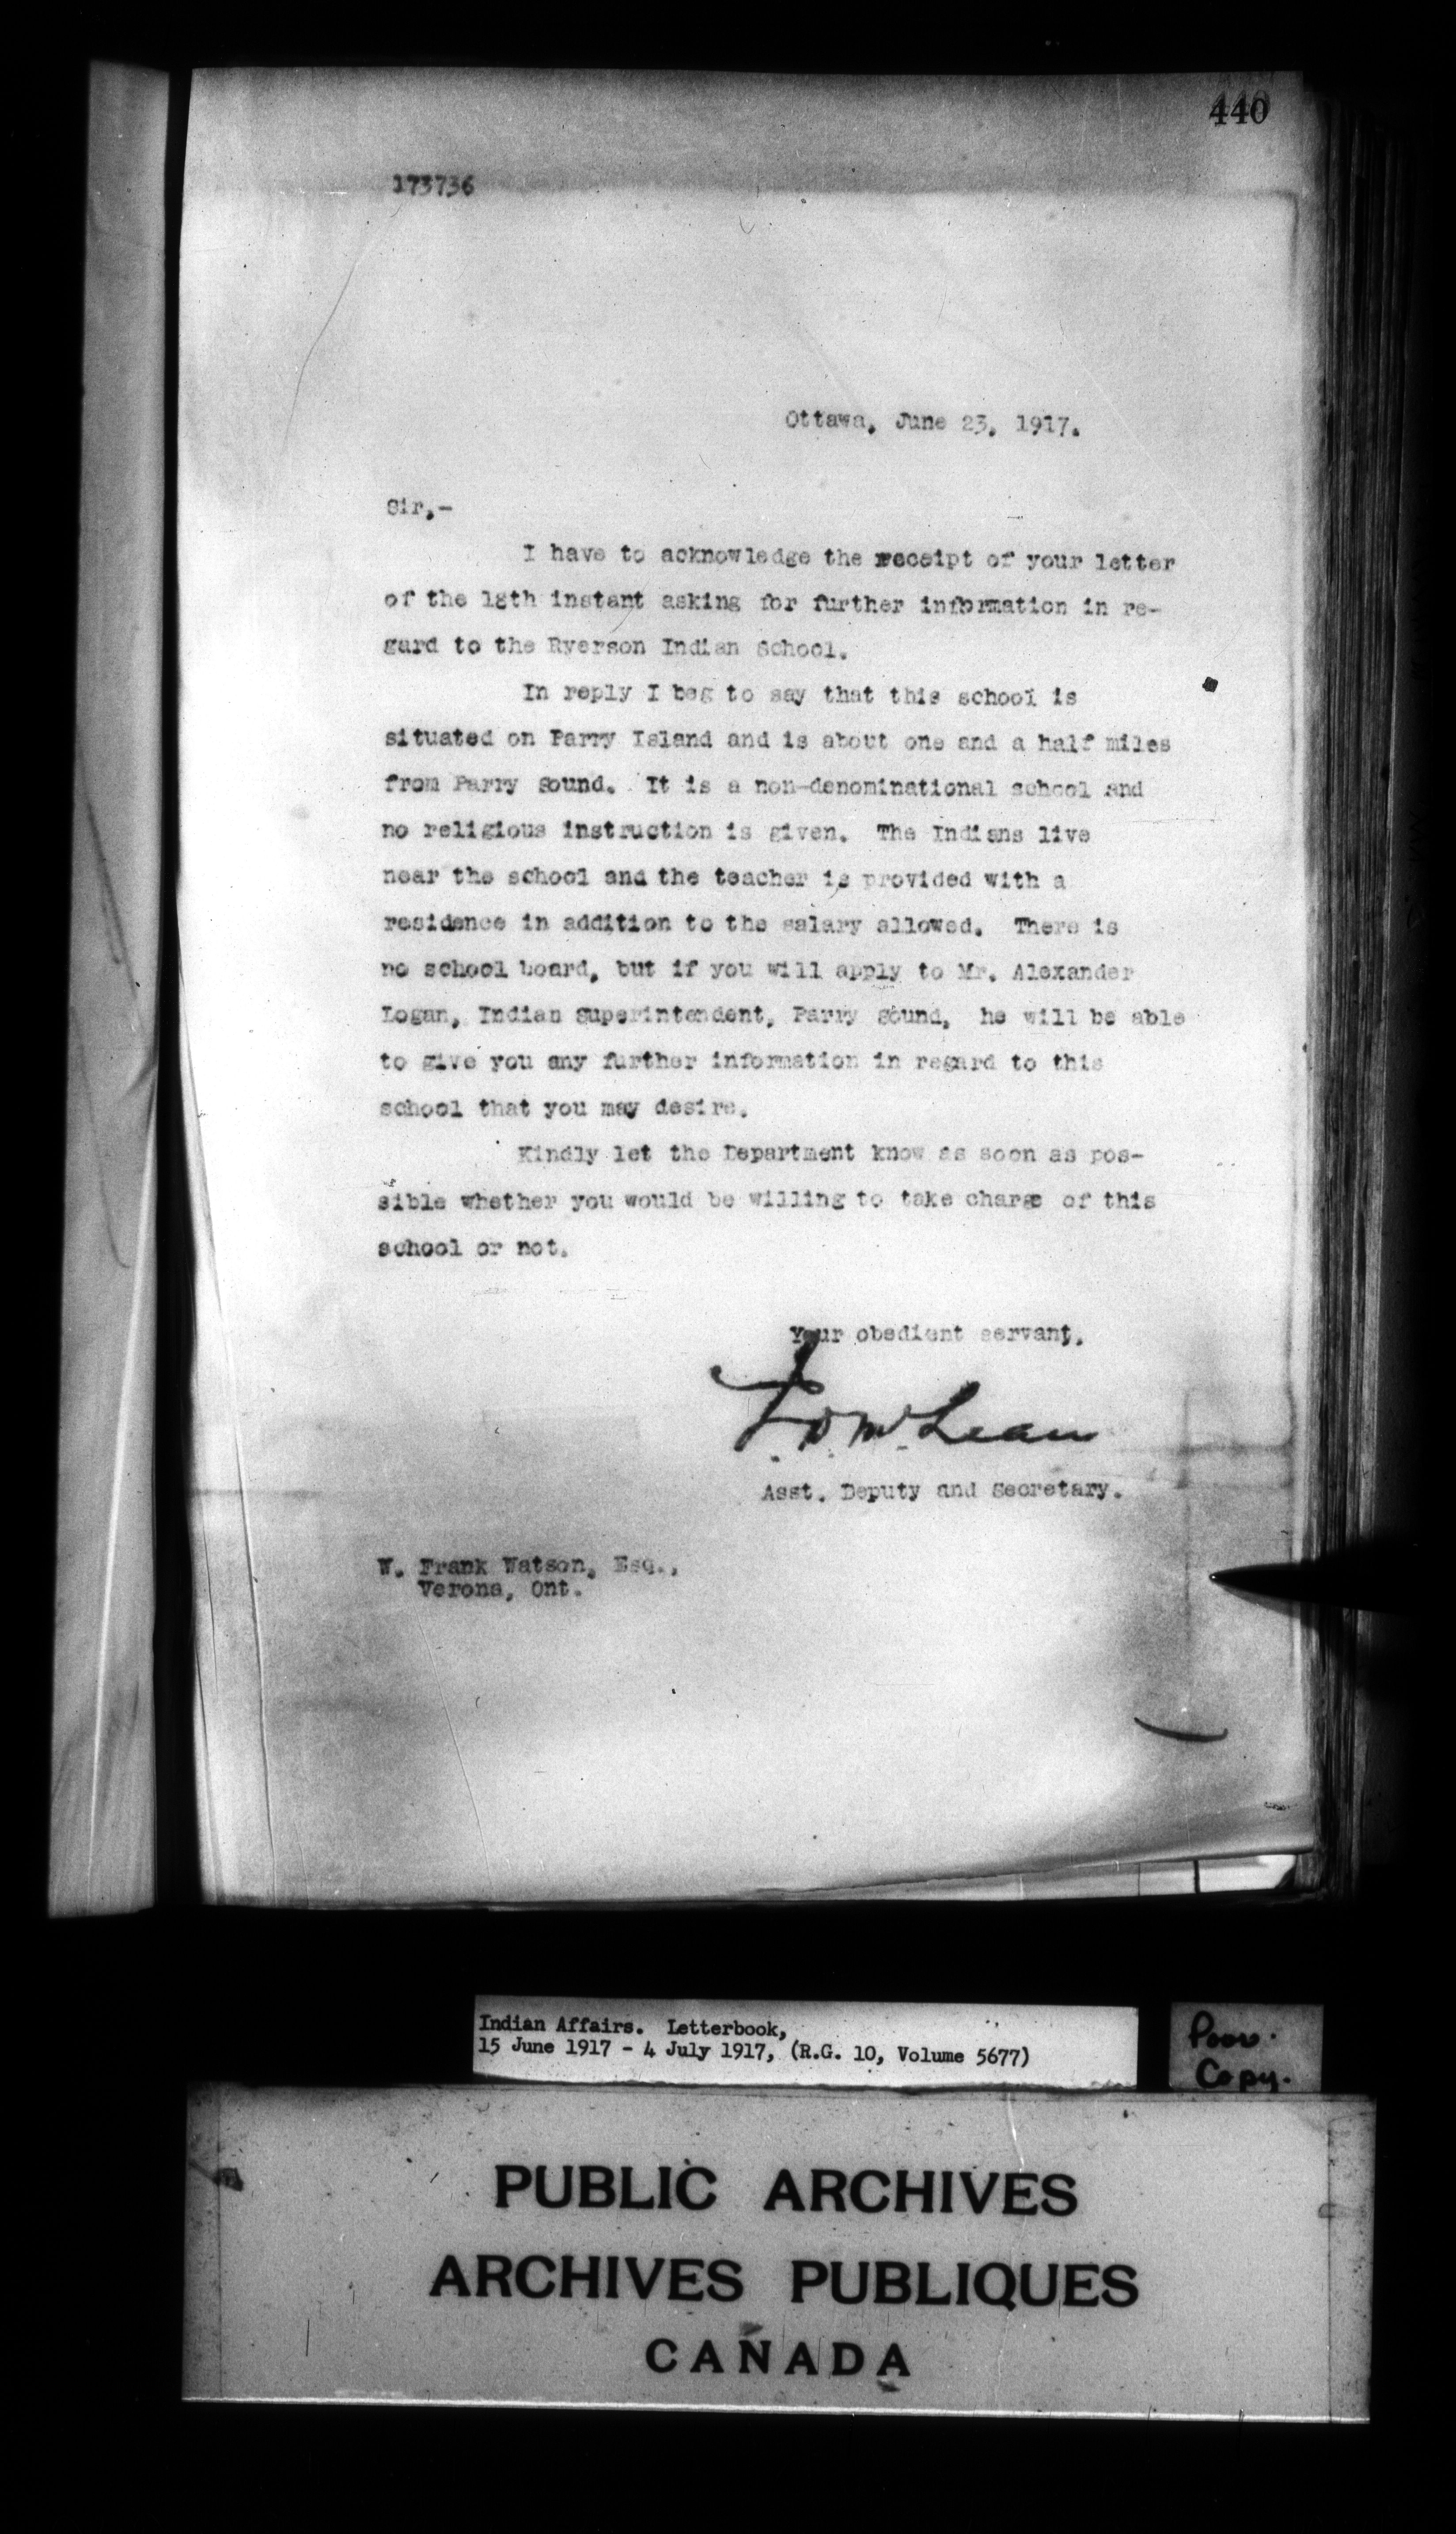 440
173736
Ottawa, June 23, 1917.
Sir,-
I have to acknowledge the receipt of your letter
of the 18th instant asking for further information in re-
gard to the Ryerson Indian School.
In reply I beg to say that this school is
situated on Parry Island and is about one and a half miles
from Parry Sound. It is a non-denominational school and
no religious instruction is given. The Indians live
near the school and the teacher is provided with a
residence in addition to the salary allowed. There is
no school board, but if you will apply to Mr. Alexander
Logan, Indian Superintendent, Parry Sound, he will be able
to give you any further information in regard to this
school that you may desire.
Kindly let the Department know as soon as pos-
sible whether you would be willing to take charge of this
school or not.
Your obedient servant,
J D McLean
Asst. Deputy and Secretary.
W. Frank Watson, Esq.,
Verona, Ont.
Indian Affairs. Letterbook,
15 June 1917 - 4 July 1917, (R.G. 10, Volume 5677)
Poor
Copy.
PUBLIC ARCHIVES
ARCHIVES PUBLIQUES
CANADA